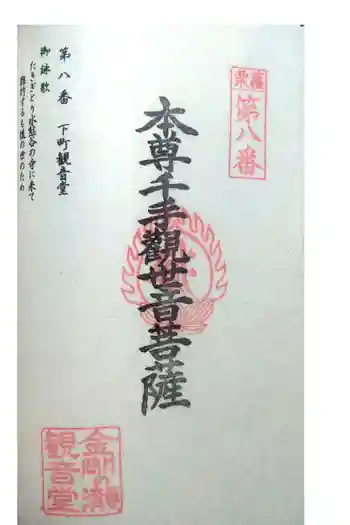 薩
第八番
本尊千手觀世音菩薩
第八番 下町観音堂
御詠歌
たきぎとり水熊谷の寺に来て
難行するも後の世のため
金剛の瀧
観音堂